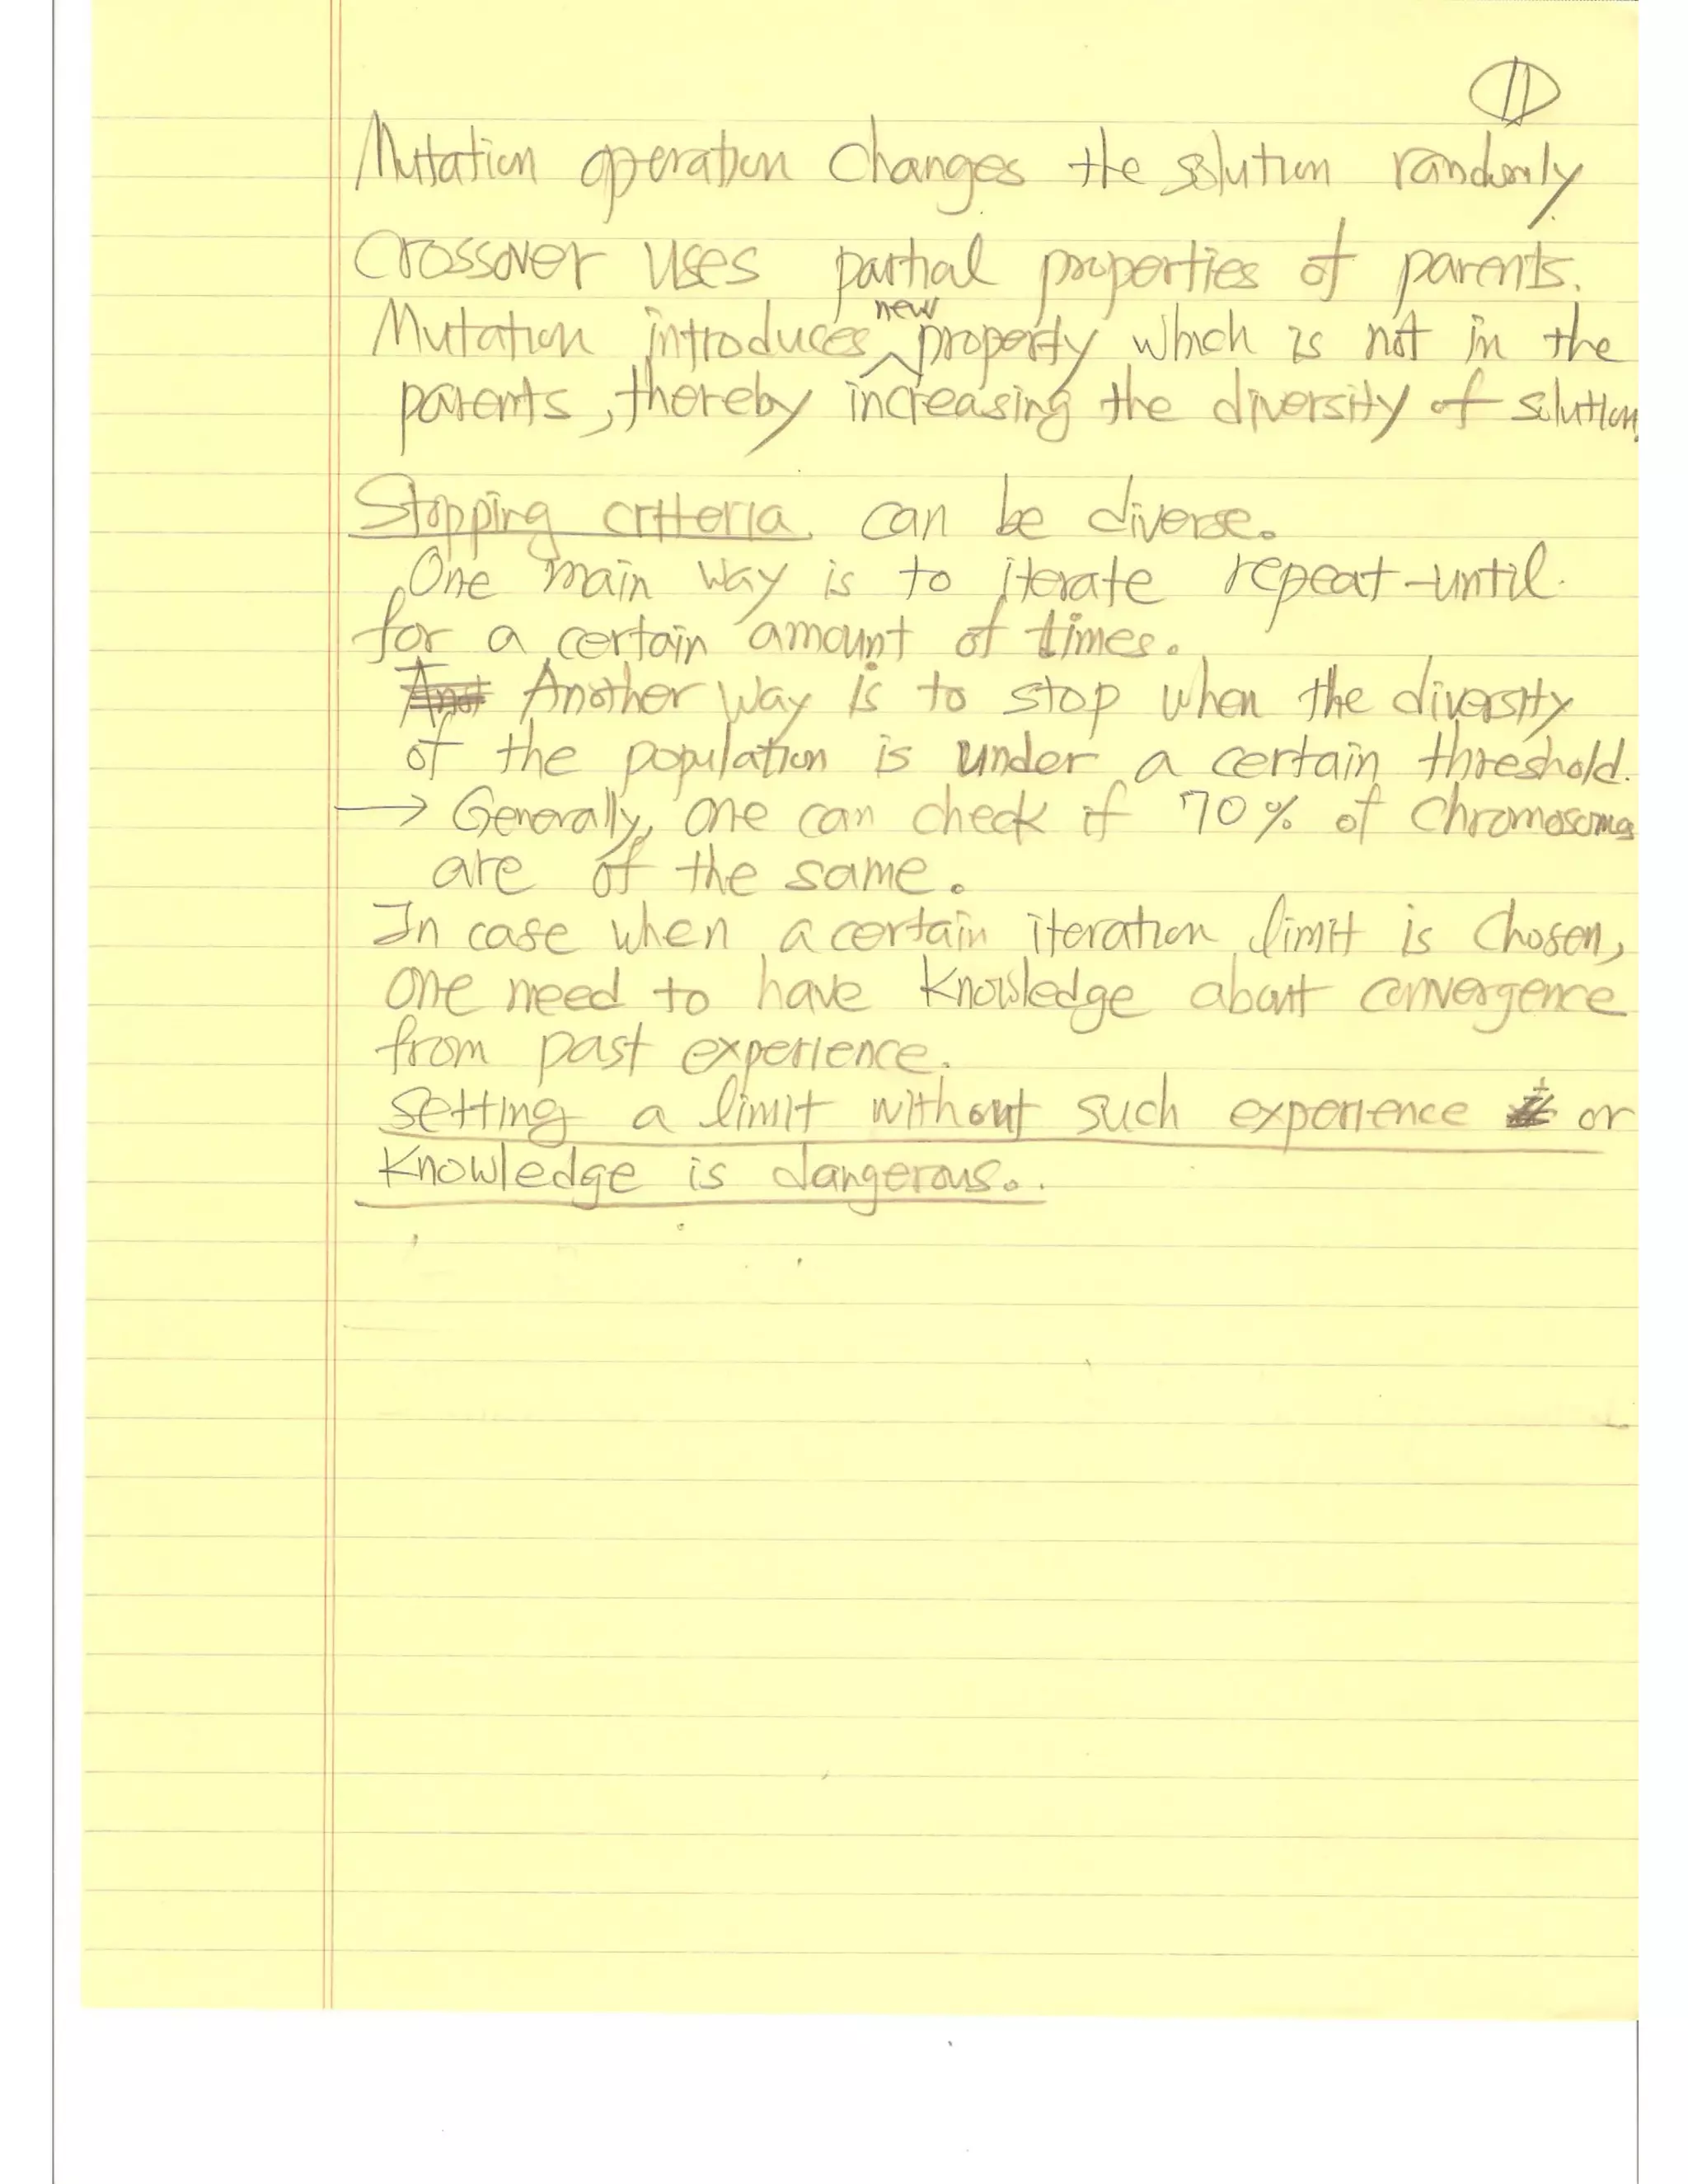 11
Mutation operation changes the solution randomly.
Crossover uses partial properties of parents.
Mutation introduces new property which is not in the
parents, thereby increasing the diversity of solution.
Stopping criteria can be diverse.
One main way is to iterate repeat-until
for a certain amount of times.
Another way is to stop when the diversity
of the population is under a certain threshold.
→ Generally, one can check if 70% of chromosomes
are of the same.
In case when a certain iteration limit is chosen,
one need to have knowledge about convergence
from past experience.
Setting a limit without such experience or
knowledge is dangerous.